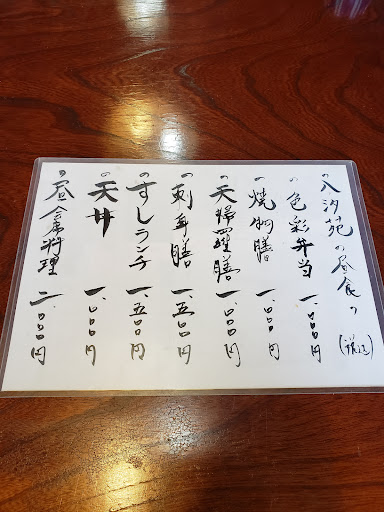 八汐苑の昼食
(税込)
色彩弁当 一、〇〇〇円
焼物膳 一、〇〇〇円
天婦羅膳 一、〇〇〇円
刺身膳 一、五〇〇円
すしランチ 一、五〇〇円
天丼 一、〇〇〇円
昼会席料理 二、〇〇〇円